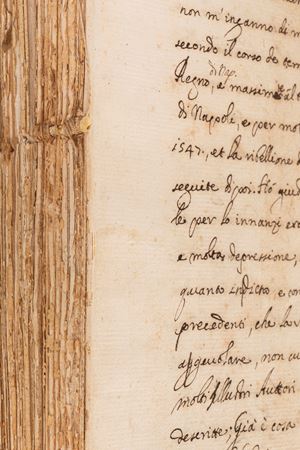 non m'inganno di m
secondo il corso de tem
di Nap.
Regno, e massime il
di Napoli, e per mol
1547., et la ribellione d
seguite di poi. Hò giud
le per lo innanzi er
e molta depressione,
quanto indicto e con
precedenti, che la
agguolare, non cu
molti Illustri Auttori
descritte; Già è cosa